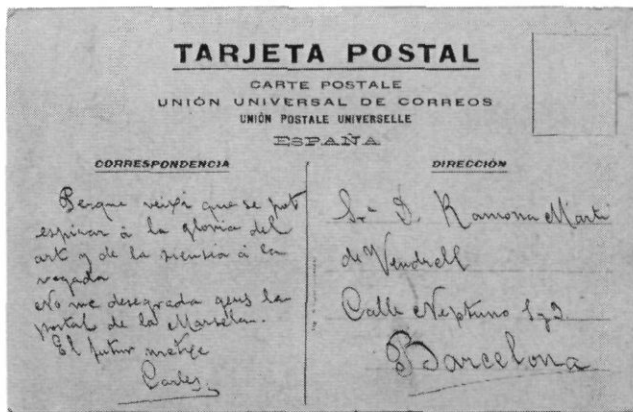 TARJETA POSTAL
CARTE POSTALE
UNIÓN UNIVERSAL DE CORREOS
UNIÓN POSTALE UNIVERSELLE
ESPAÑA
CORRESPONDENCIA
Perque veixi que se pot
espirar à la gloria del
art y de la siensia à la
vegada
No me desegrada gens la
postal de la Marsela.
El futur metje
Carles
DIRECCIÓN
Sra D. Ramona Marti
de Vendrell
Calle Neptuno 1 y 3
Barcelona